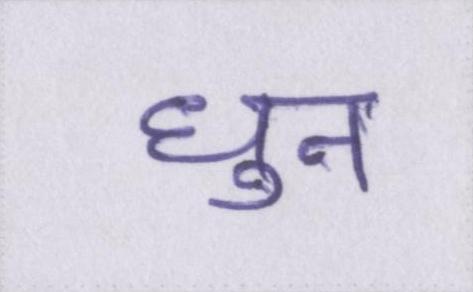 धुन